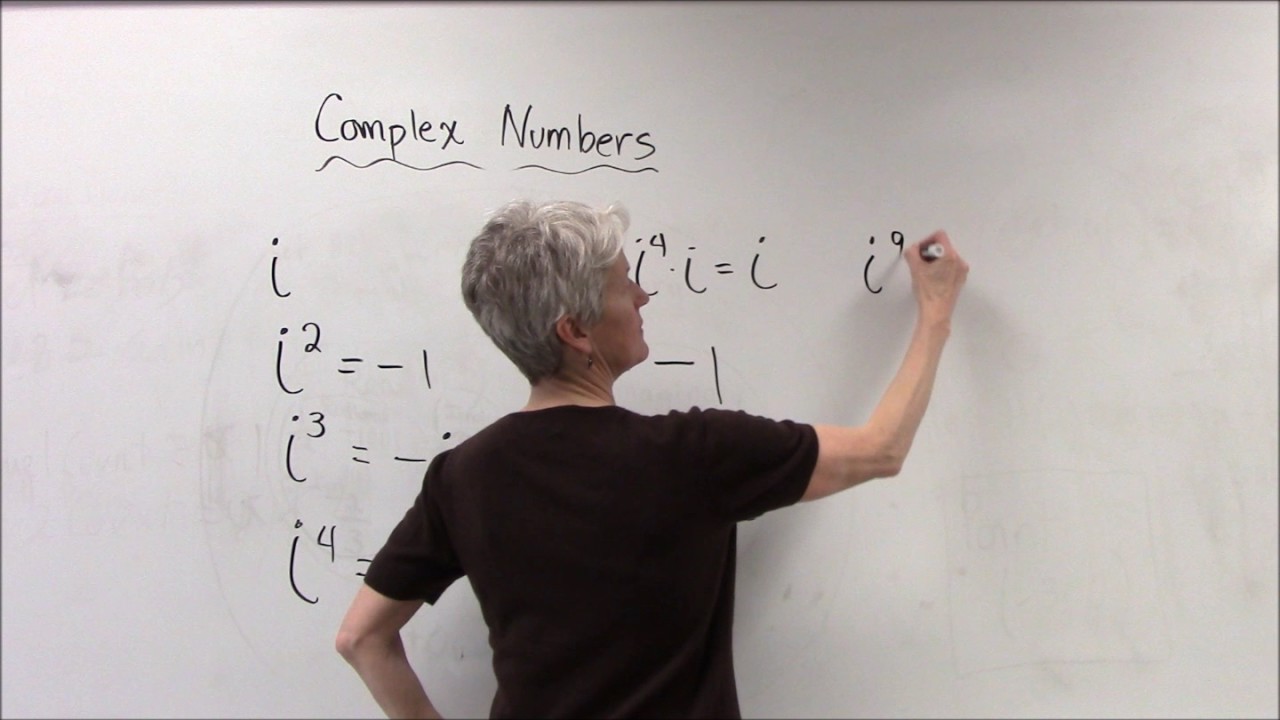 Complex Numbers
i i⁴·i = i i⁹
i² = -1 -1
i³ = -i
i⁴ =